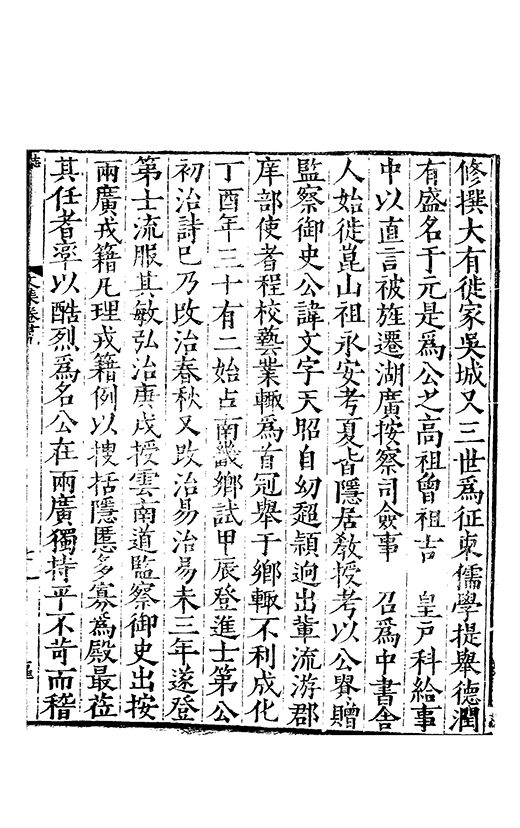 修撰大有徙家吳城又三世爲征東儒學提舉德潤
有盛名于元是爲公之高祖曾祖吉　皇戶科給事
中以直言被旌遷湖廣按察司僉事　召爲中書舍
人始徙崑山祖永安考夏皆隱居敎授考以公累贈
監察御史公諱文字天昭自幼超頴逈出輩流游郡
庠部使者程校藝業輙爲首冠舉于鄉輙不利成化
丁酉年三十有二始占南畿鄉試甲辰登進士第公
初治詩已乃改治春秋又改治易治易未三年遂登
第士流服其敏弘治庚戌授雲南道監察御史出按
兩廣戎籍凡理戎籍例以搜括隱慝多寡爲殿最莅
其任者率以酷烈爲名公在兩廣獨持平不苛而稽
文集卷